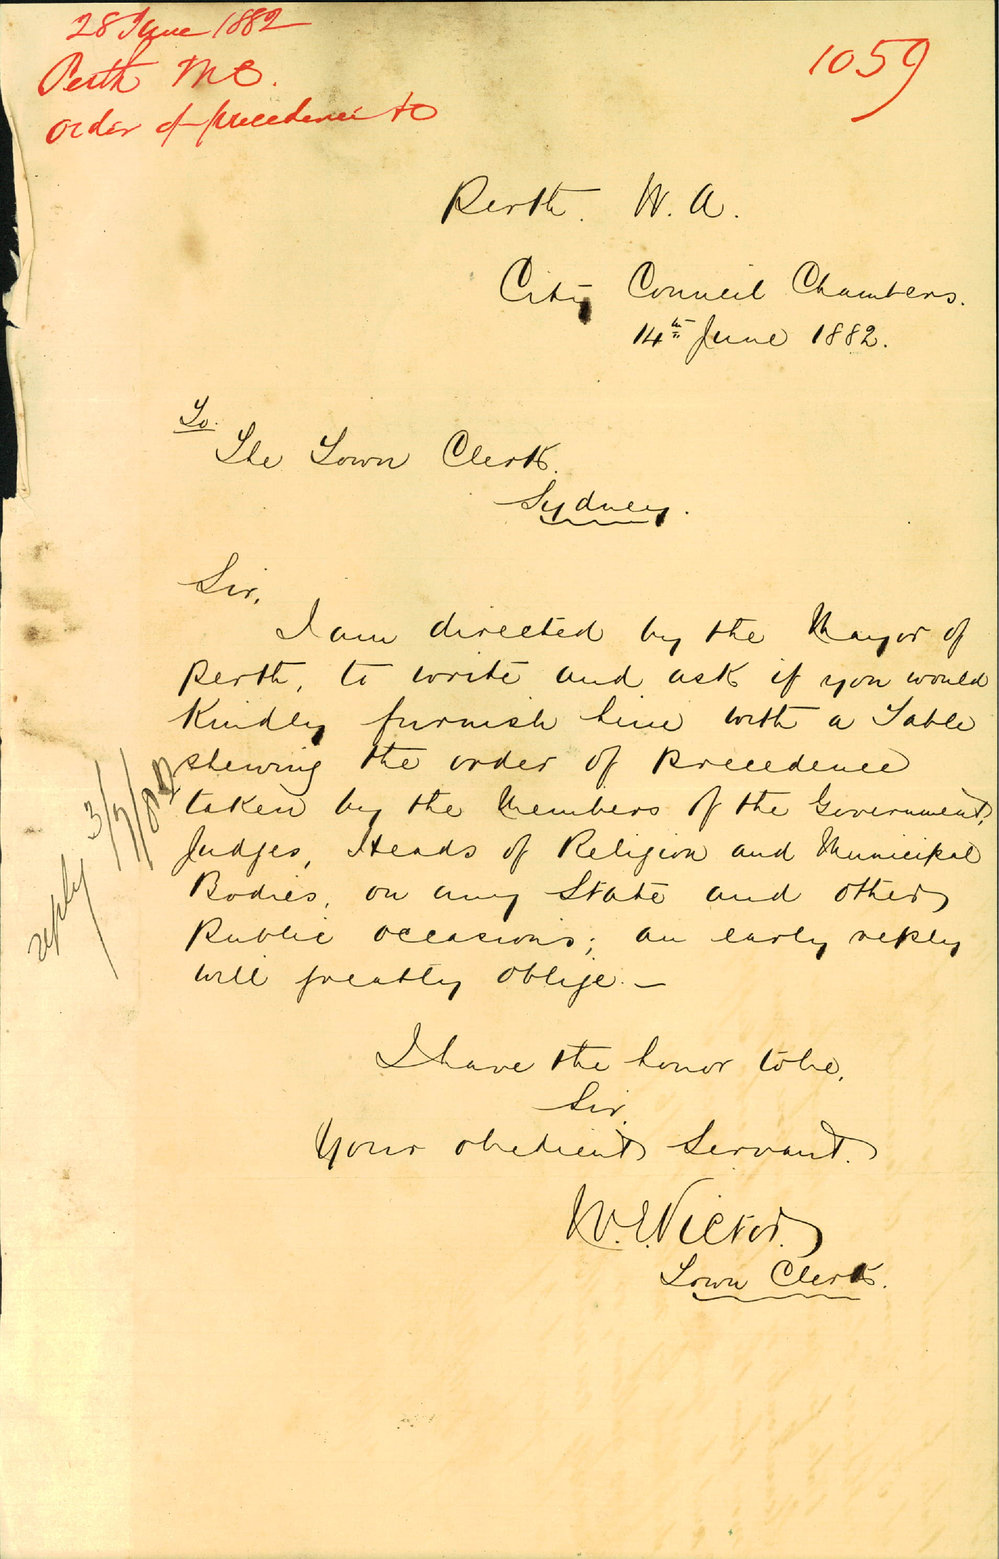 28 June 1882
Perth M C.
order of precedence &c
1059
Perth. W. A.
City Council Chambers.
14th June 1882.
To.
The Town Clerk.
Sydney.
Sir,
I am directed by the Mayor of
Perth, to write and ask if you would
Kindly furnish him with a Table
shewing the order of precedence
taken by the Members of the Government,
Judges, Heads of Religion and Municipal
Bodies, on any State and other
public occasions; an early reply
will greatly oblige. —
I have the honor to be,
Sir,
Your obedient Servant.
W. E. Victor.
Town Clerk.
reply 3/7/82